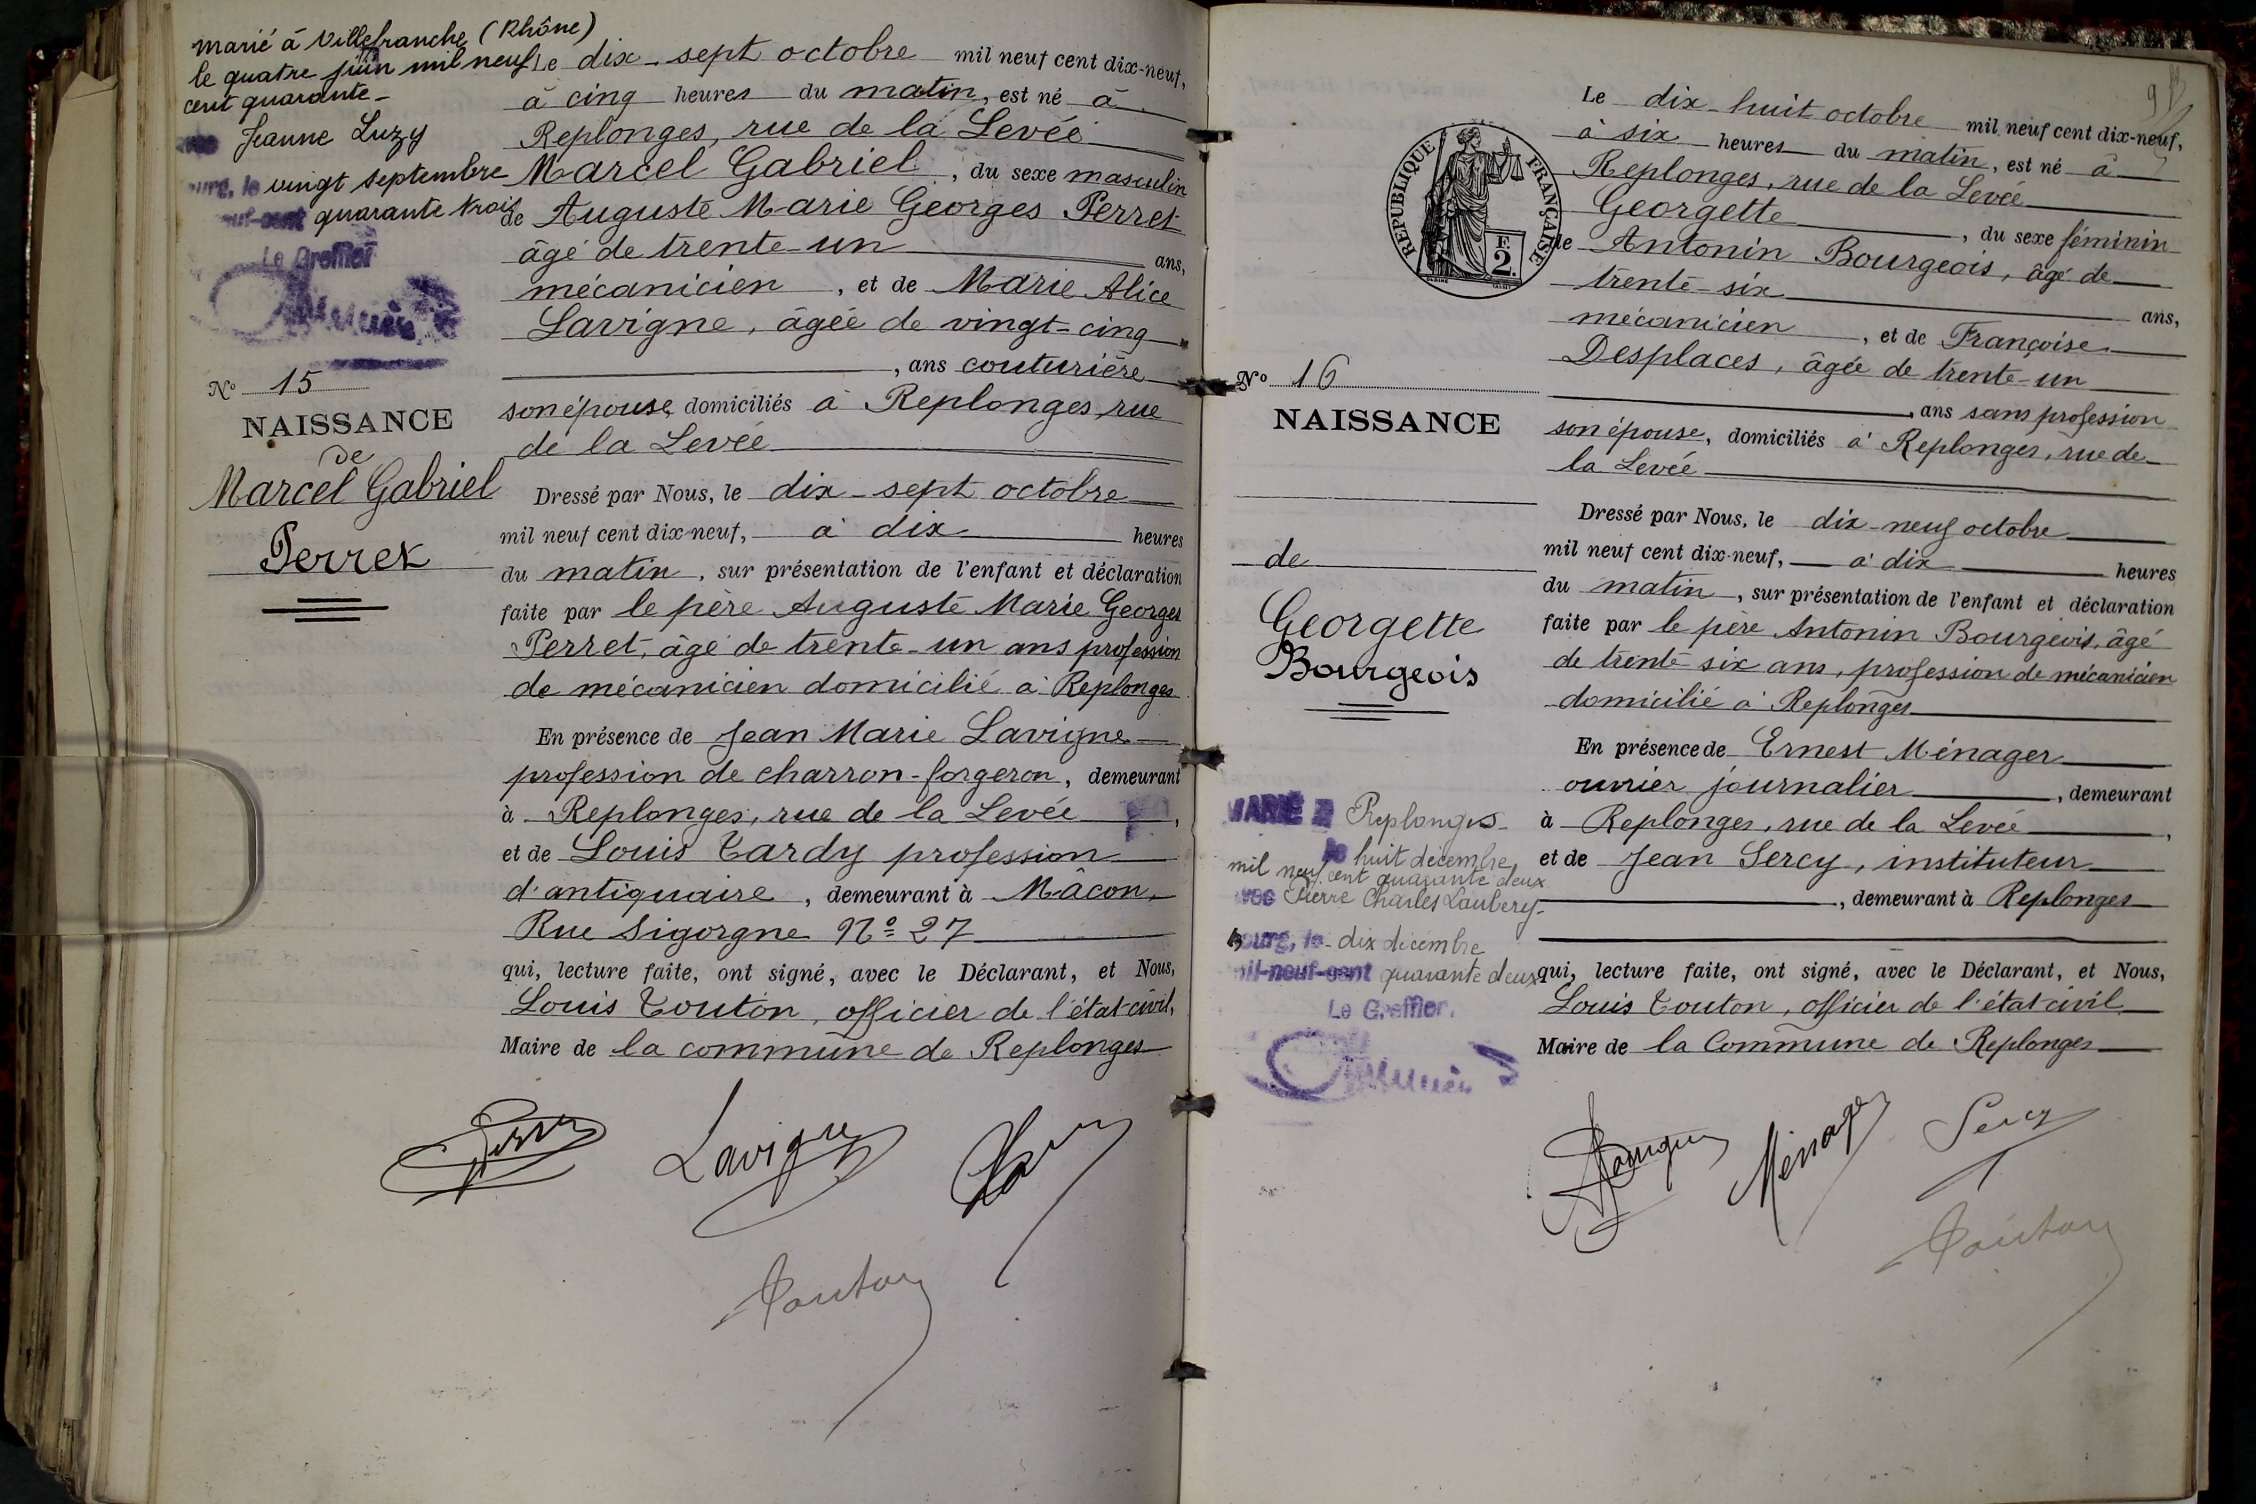 marié à Villefranche (Rhône)
le quatre juin mil neuf
cent quarante
avec Jeanne Luzy
Bourg, le vingt septembre
neuf-cent quarante trois
Le Greffier
Nº 15
NAISSANCE
de
Marcel Gabriel
Perret
Le dix-sept octobre mil neuf cent dix-neuf,
à cinq heures du matin, est né à
Replonges, rue de la Levée
Marcel Gabriel, du sexe masculin
de Auguste Marie Georges Perret
âgé de trente-un ans,
mécanicien, et de Marie Alice
Lavigne, âgée de vingt-cinq
, ans couturière
son épouse, domiciliés à Replonges, rue
de la Levée
Dressé par Nous, le dix-sept octobre
mil neuf cent dix-neuf, à dix heures
du matin, sur présentation de l'enfant et déclaration
faite par le père Auguste Marie Georges
Perret, âgé de trente-un ans profession
de mécanicien domicilié à Replonges
En présence de Jean Marie Lavigne
profession de charron-forgeron, demeurant
à Replonges, rue de la Levée,
et de Louis Tardy profession
d'antiquaire, demeurant à Mâcon,
Rue Sigorgne Nº 27
qui, lecture faite, ont signé, avec le Déclarant, et Nous,
Louis Touton, officier de l'état-civil,
Maire de la commune de Replonges
Perret Lavigne
Touton
RÉPUBLIQUE FRANÇAISE
F.
2.
Nº 16
NAISSANCE
de
Georgette
Bourgeois
MARIÉ à Replonges
le huit décembre
mil neuf cent quarante deux
avec Pierre Charles Laubery
Bourg, le dix décembre
mil-neuf-cent quarante deux
Le Greffier.
Le dix-huit octobre mil neuf cent dix-neuf,
à six heures du matin, est né à
Replonges, rue de la Levée
Georgette, du sexe féminin
de Antonin Bourgeois, âgé de
trente-six ans,
mécanicien, et de Françoise
Desplaces, âgée de trente-un
, ans sans profession
son épouse, domiciliés à Replonges, rue de
la Levée
Dressé par Nous, le dix-neuf octobre
mil neuf cent dix-neuf, à dix heures
du matin, sur présentation de l'enfant et déclaration
faite par le père Antonin Bourgeois, âgé
de trente-six ans, profession de mécanicien
domicilié à Replonges
En présence de Ernest Ménager
ouvrier journalier, demeurant
à Replonges, rue de la Levée,
et de Jean Sercy, instituteur
, demeurant à Replonges
qui, lecture faite, ont signé, avec le Déclarant, et Nous,
Louis Touton, officier de l'état civil
Maire de la Commune de Replonges
Bourgeois Ménager Sercy
Touton